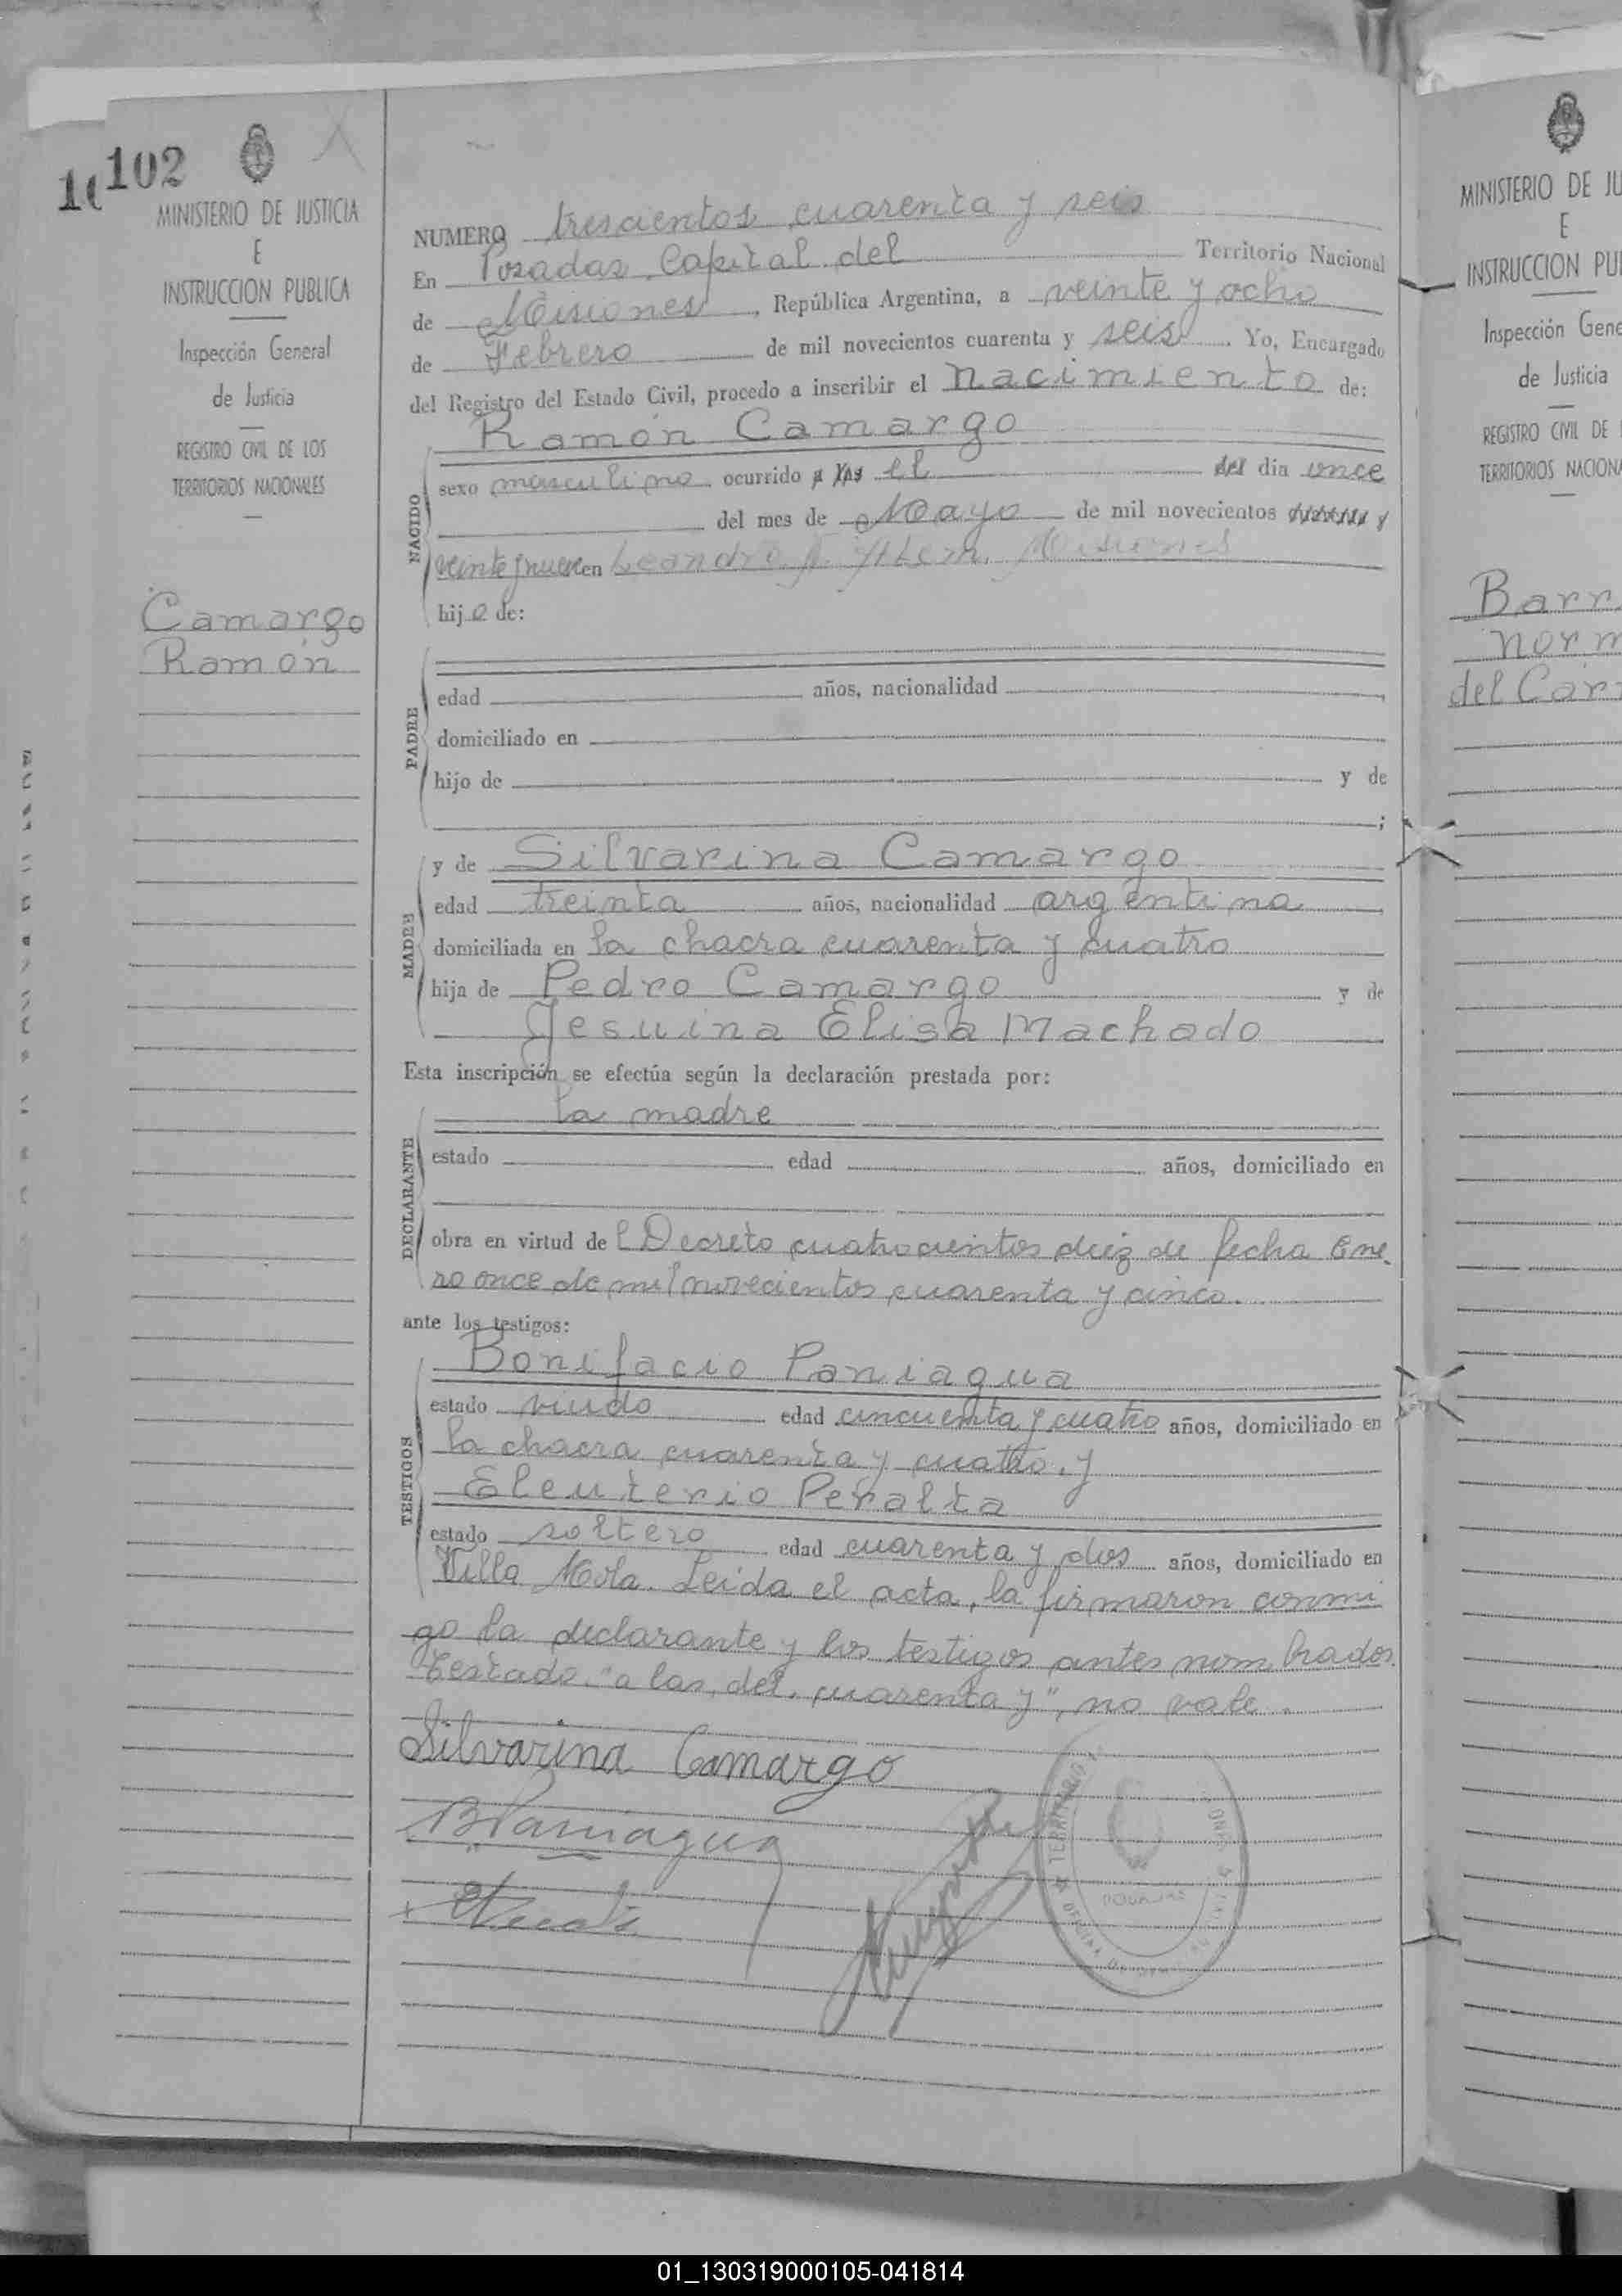 102
MINISTERIO DE JUSTICIA
E
INSTRUCCION PUBLICA
Inspección General
de Justicia
REGISTRO CIVIL DE LOS
TERRITORIOS NACIONALES
Camargo
Ramón
NUMERO trescientos cuarenta y seis
En Posadas Capital del Territorio Nacional
de Misiones, República Argentina, a veinte y ocho
de Febrero de mil novecientos cuarenta y seis. Yo, Encargado
del Registro del Estado Civil, procedo a inscribir el nacimiento de:
Ramón Camargo
NACIDO
sexo masculino ocurrido a las el del dia once
del mes de Mayo de mil novecientos cuarenta y
veinte y nueve en Leandro N. Alem, Misiones
hijo de:
PADRE
edad años, nacionalidad ,
domiciliado en
hijo de y de
;
MADRE
y de Silvarina Camargo
edad treinta años, nacionalidad argentina,
domiciliada en la chacra cuarenta y cuatro
hija de Pedro Camargo y de
Jesuina Elisa Machado
Esta inscripción se efectúa según la declaración prestada por:
DECLARANTE
la madre
estado edad años, domiciliado en
obra en virtud del Decreto cuatrocientos diez de fecha Ene
ro once de mil novecientos cuarenta y cinco.
ante los testigos:
TESTIGOS
Bonifacio Paniagua
estado viudo edad cincuenta y cuatro años, domiciliado en
la chacra cuarenta y cuatro, y
Eleuterio Peralta
estado soltero edad cuarenta y dos años, domiciliado en
Villa Mola. Leída el acta, la firmaron conmi
go la declarante y los testigos antes nombrados.
Testado: "a las, del, cuarenta y", no vale.
Silvarina Camargo
BPaniagua
TERRITORIO
POSADAS
MINISTERIO DE JU
E
INSTRUCCION PU
Inspección Gene
de Justicia
REGISTRO CIVIL DE
TERRITORIOS NACIONA
Barr
Norm
del Car
01_130319000105-041814